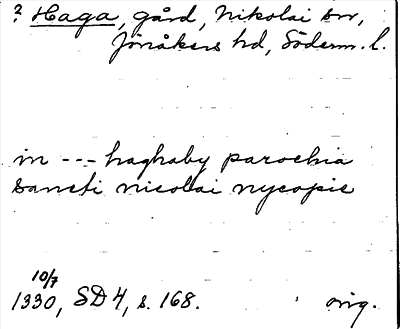 ? Haga, gård, Nikolai sn,
Jönåkers hd, Söderm. l.
in --- haghaby parochia
sancti nicolai nycopie
10/7
1330, SD 4, s. 168. orig.